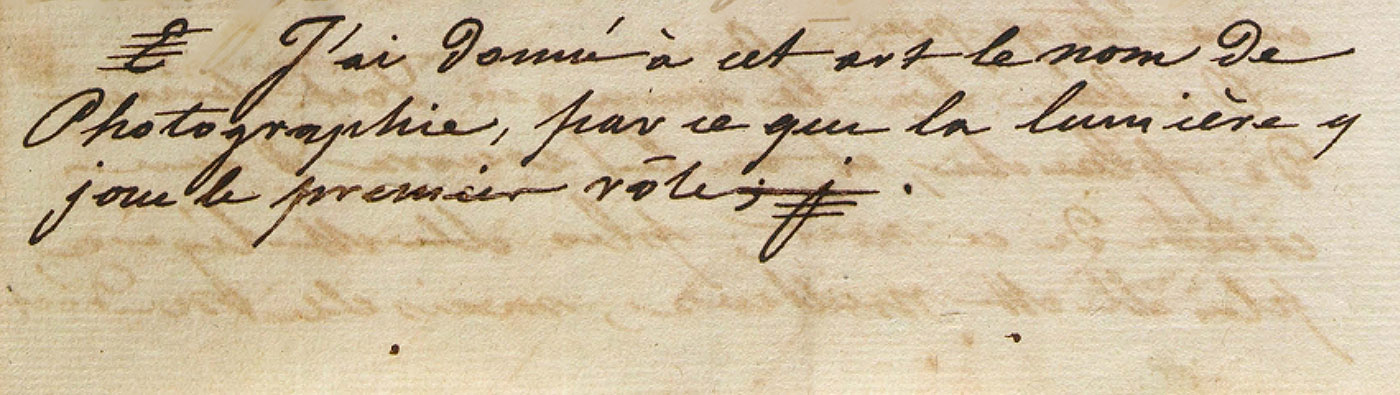 J'ai donné à cet art le nom de
Photographie, par ce que la lumière y
joue le premier rôle.